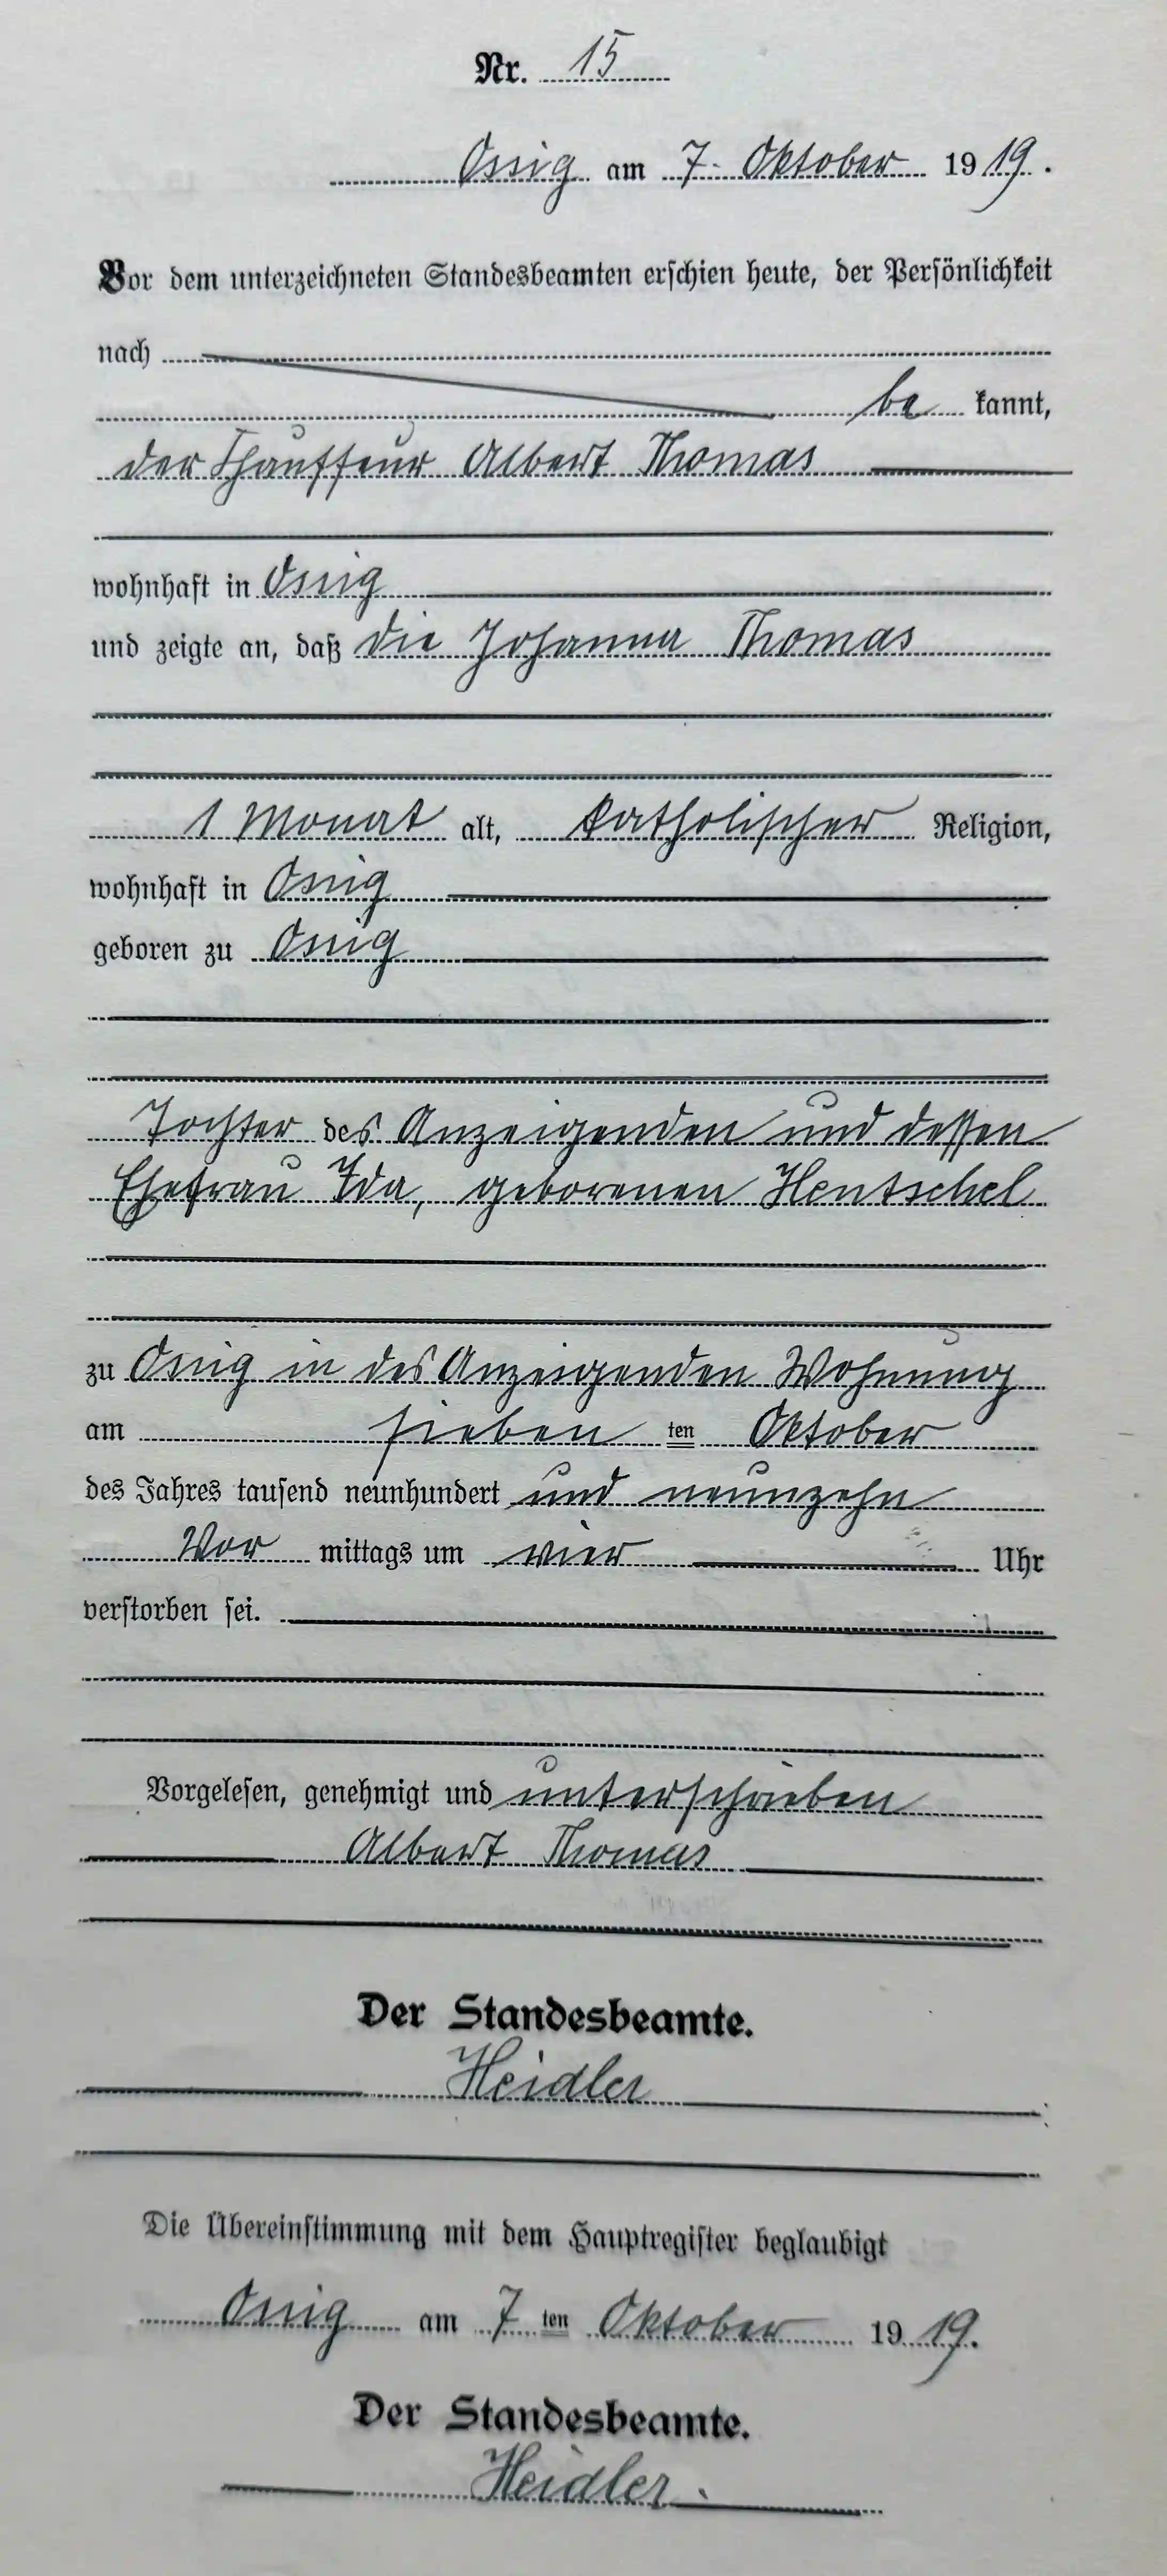 Nr. 15
Ossig am 7. Oktober 1919.
Vor dem unterzeichneten Standesbeamten erschien heute, der Persönlichkeit
nach
be kannt,
der Chauffeur Albert Thomas
wohnhaft in Ossig
und zeigte an, daß die Johanna Thomas
1 Monat alt, katholischer Religion,
wohnhaft in Ossig
geboren zu Ossig
Tochter des Anzeigenden und dessen
Ehefrau Ida, geborenen Hentschel
zu Ossig in des Anzeigenden Wohnung
am sieben ten Oktober
des Jahres tausend neunhundert und neunzehn
Vor mittags um vier Uhr
verstorben sei.
Vorgelesen, genehmigt und unterschrieben
Albert Thomas
Der Standesbeamte.
Heidler
Die Übereinstimmung mit dem Hauptregister beglaubigt
Ossig am 7 ten Oktober 1919.
Der Standesbeamte.
Heidler.